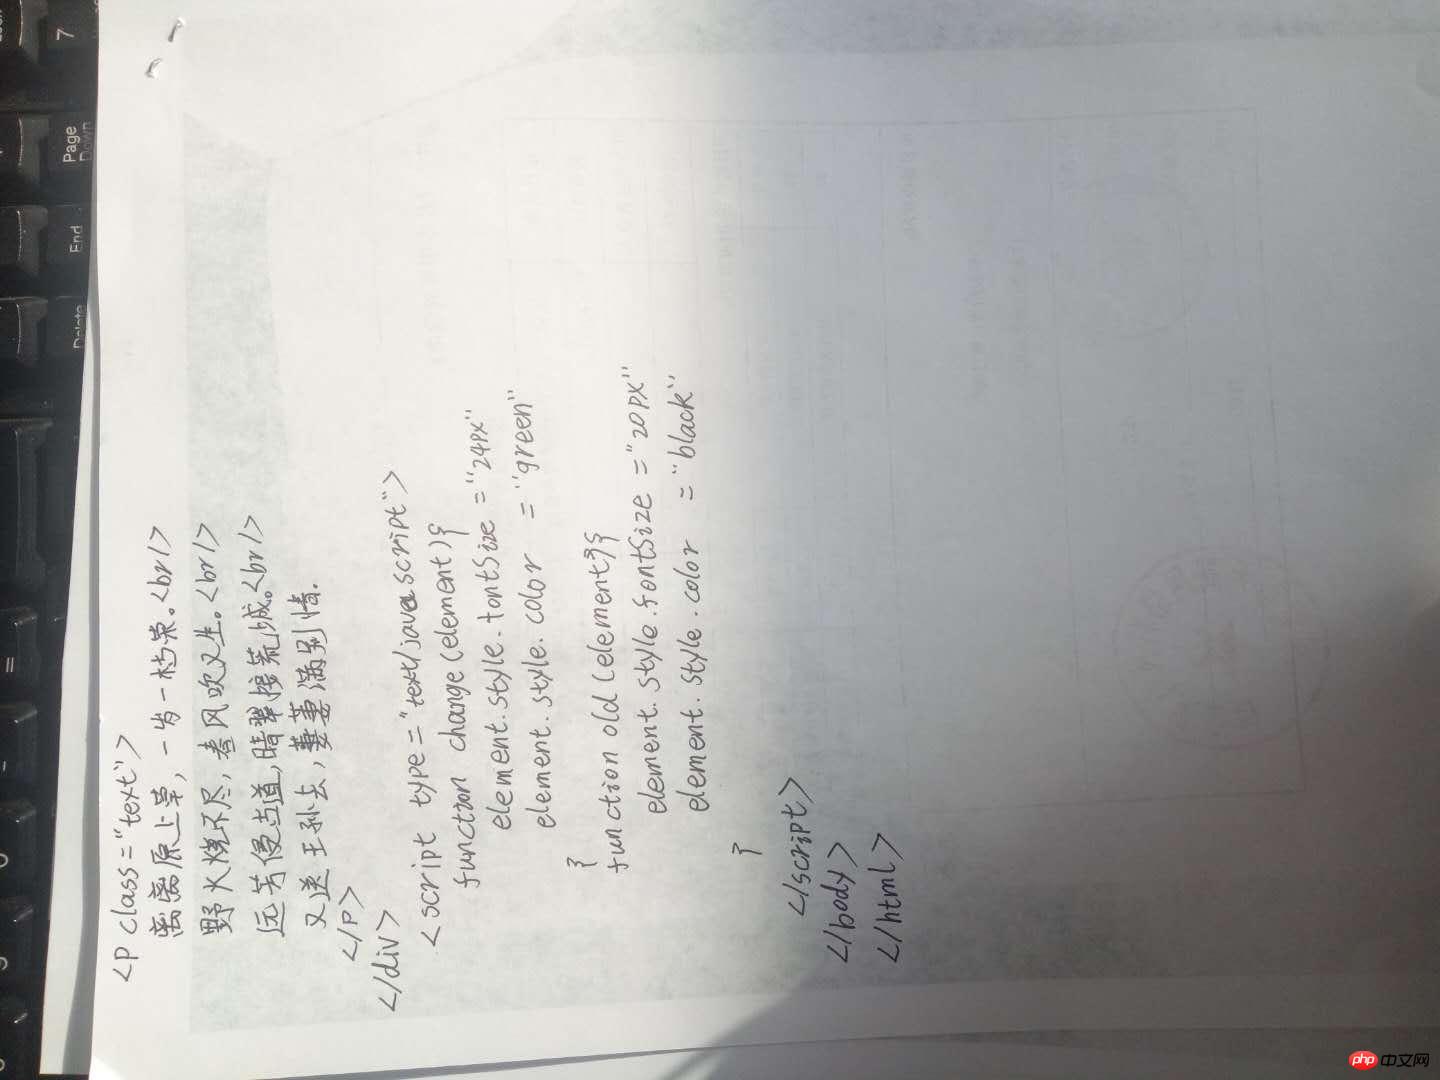 <p class="text">
离离原上草，一岁一枯荣。<br/>
野火烧不尽，春风吹又生。<br/>
远芳侵古道,晴翠接荒城。<br/>
又送王孙去，萋萋满别情.
</p>
</div>
<script type="text/javascript">
function change(element){
element.style.fontSize="24px"
element.style.color="green"
}
function old(element){
element.style.fontSize="20px"
element.style.color="black"
}
</script>
</body>
</html>
7
Page
Down
End
Delete
=
-
php 中文网